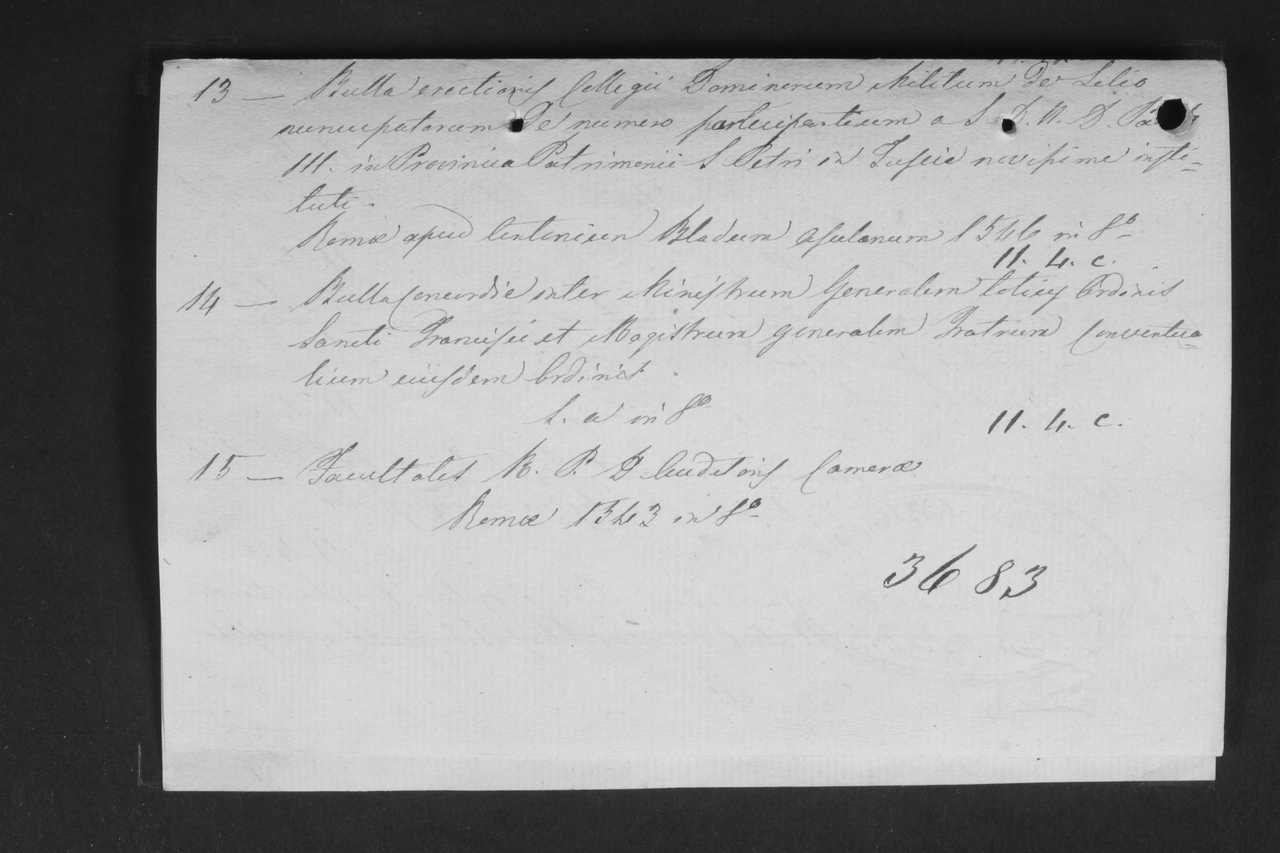 13 — Bulla erectionis Collegii Dominorum Militum de Lilio
nuncupatorum de numero participantium a S. D. N. D.
III. in Provincia Patrimonii S Petri in Tuscia novissime insti-
tuti.
Romæ apud Antonium Bladum Asulanum 1546 in 8º
11. 4. c.
14 — Bulla Concordie inter Ministrum Generalem totius Ordinis
Sancti Francisci et Magistrum generalem Fratrum Conventua-
lium eiusdem Ordinis.
S. a in 8º
11. 4. c.
15 — Facultates R. P. D Auditoris Cameræ
Romæ 1543 in 8º
3683